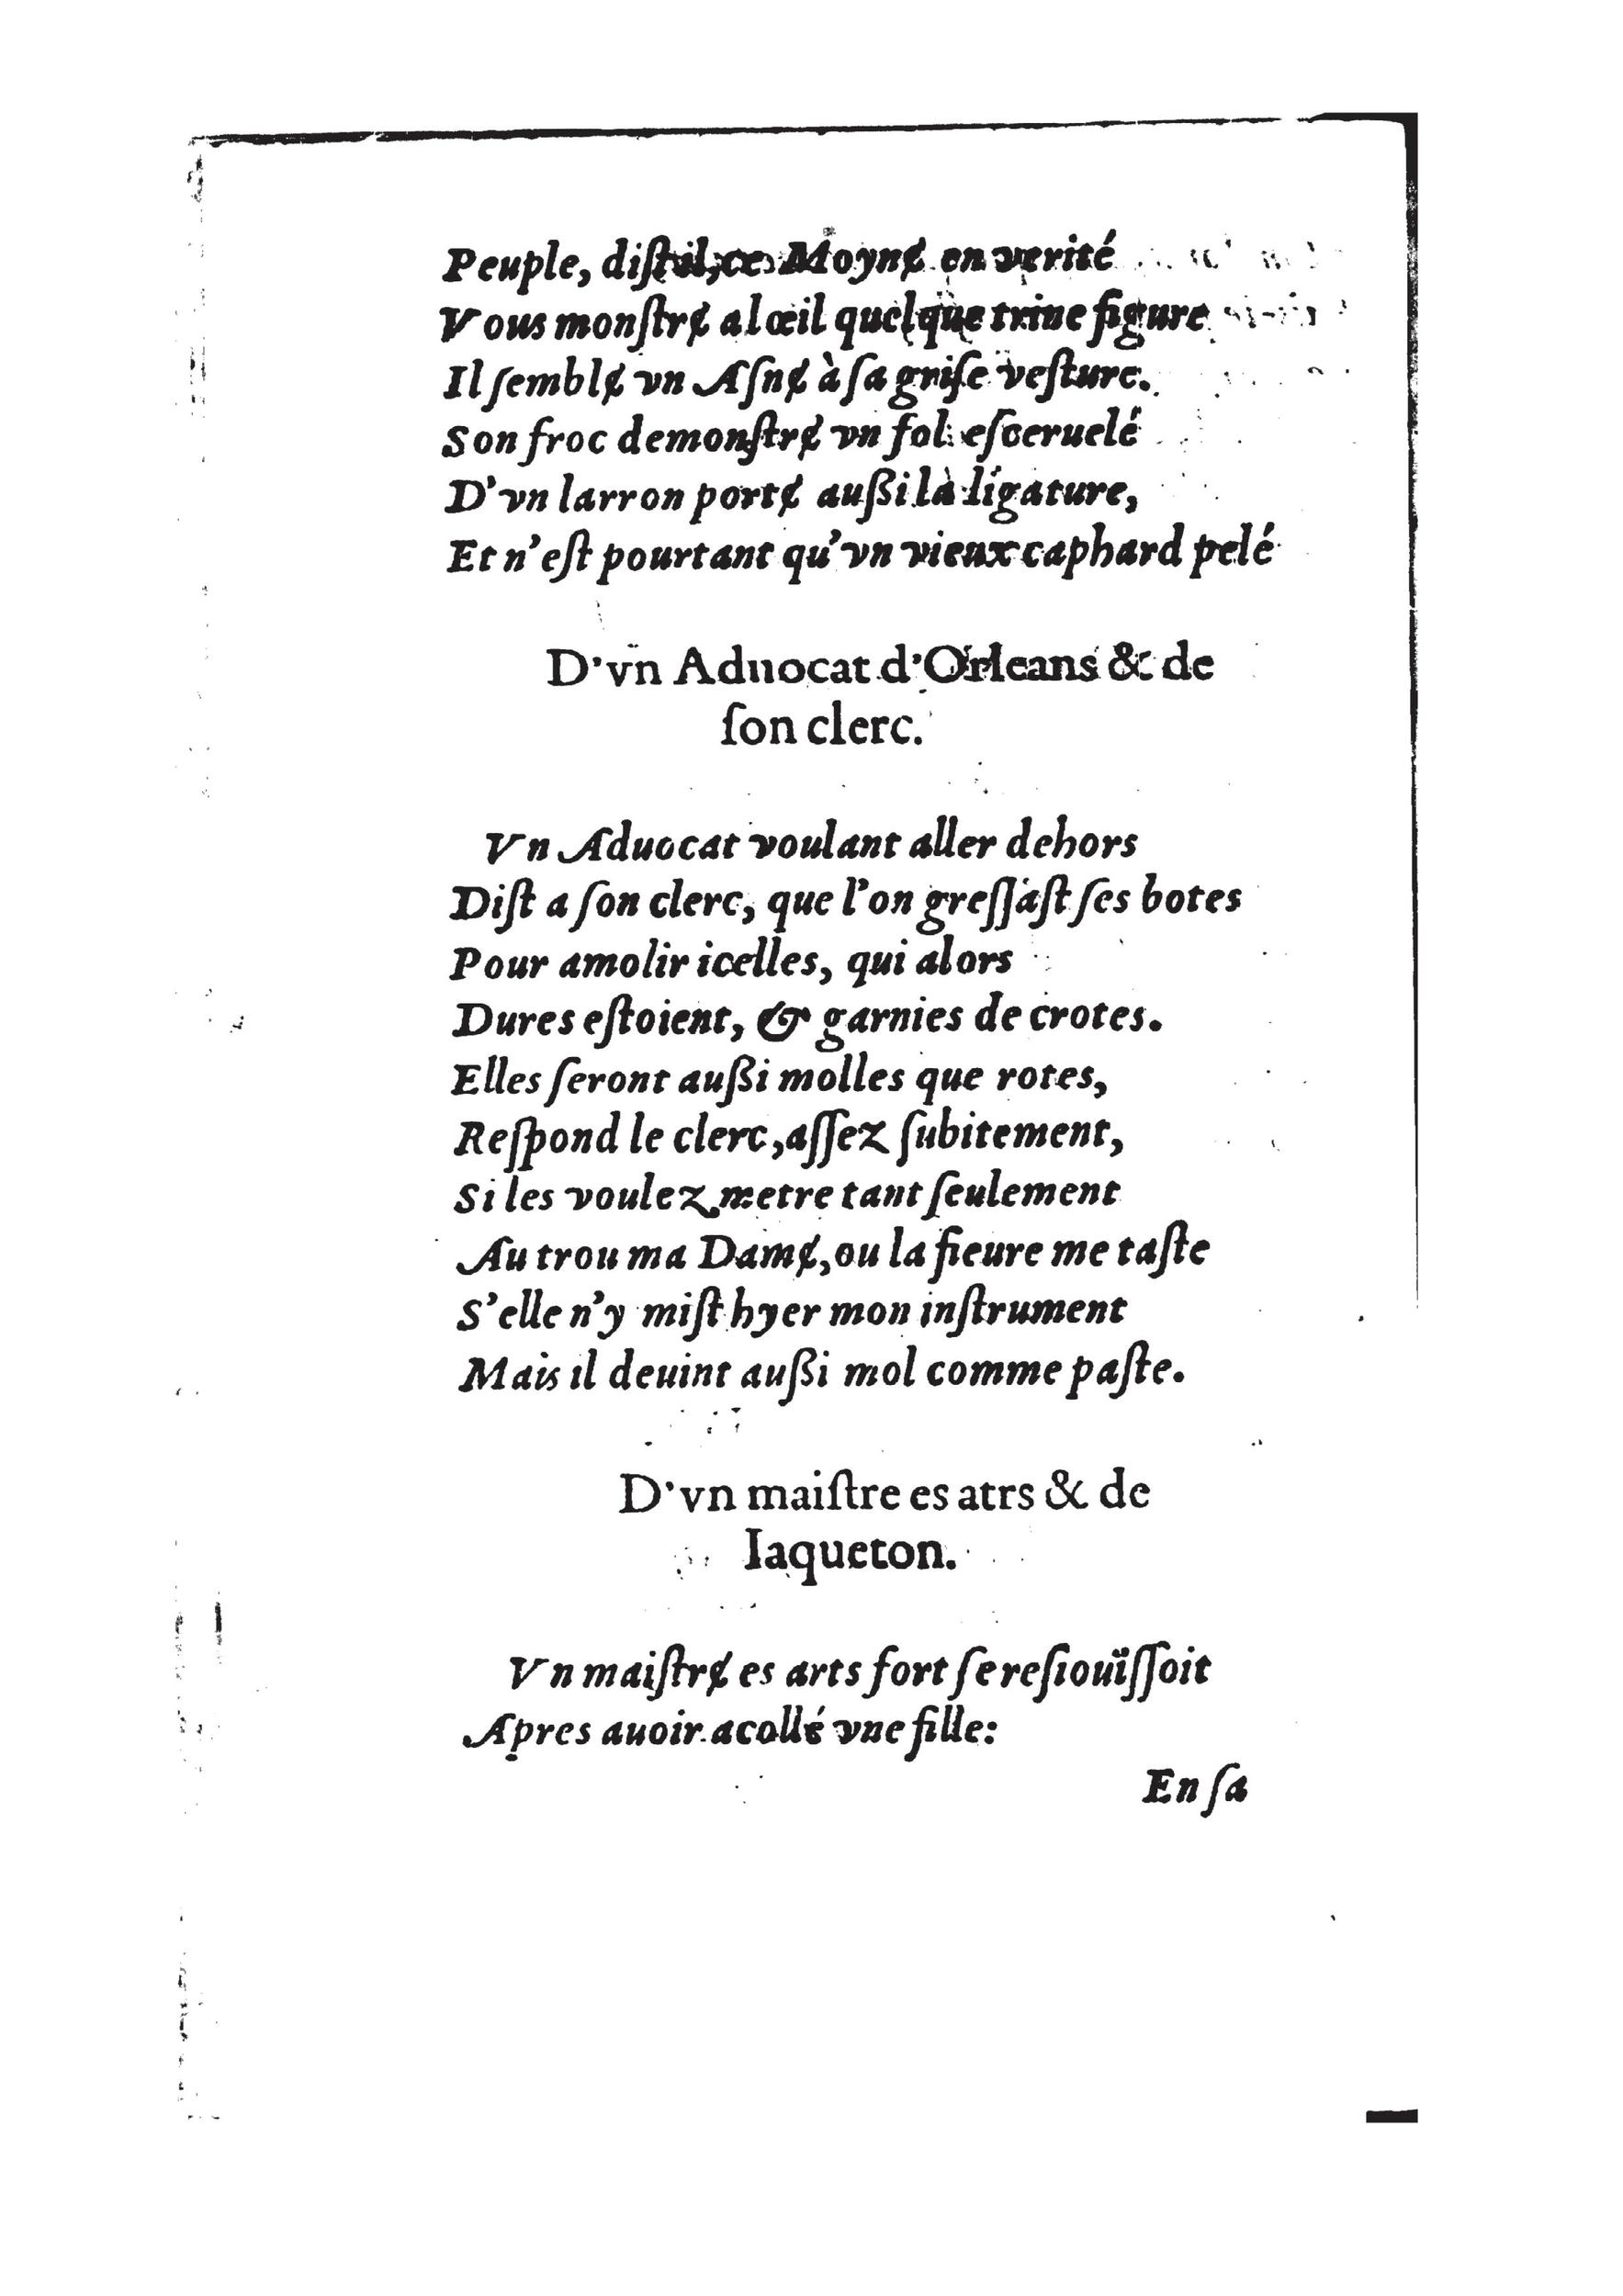 Peuple, diſt il, ce Moynɇ en verité
Vous monſtrɇ al œil quelque trine figure
Il ſemblɇ vn Aſnɇ à ſa griſe veſture.
Son froc demonſtrɇ vn fol eſceruelé
D'vn larron portɇ außi la ligature,
Et n'eſt pourtant qu'vn vieux caphard pelé
D'vn Aduocat d'Orleans & de
ſon clerc.
Vn Aduocat voulant aller dehors
Diſt a ſon clerc, que l'on greſſaſt ſes botes
Pour amolir icelles, qui alors
Dures eſtoient, & garnies de crotes.
Elles ſeront außi molles que rotes,
Reſpond le clerc, aſſez ſubitement,
Si les voulez metre tant ſeulement
Au trou ma Damɇ, ou la fieure me taſte
S'elle n'y miſt hyer mon inſtrument
Mais il deuint außi mol comme paſte.
D'vn maiſtre es atrs & de
Iaqueton.
Vn maiſtrɇ es arts fort ſe reſiouïſſoit
Apres auoir acollé vne fille:
En ſa